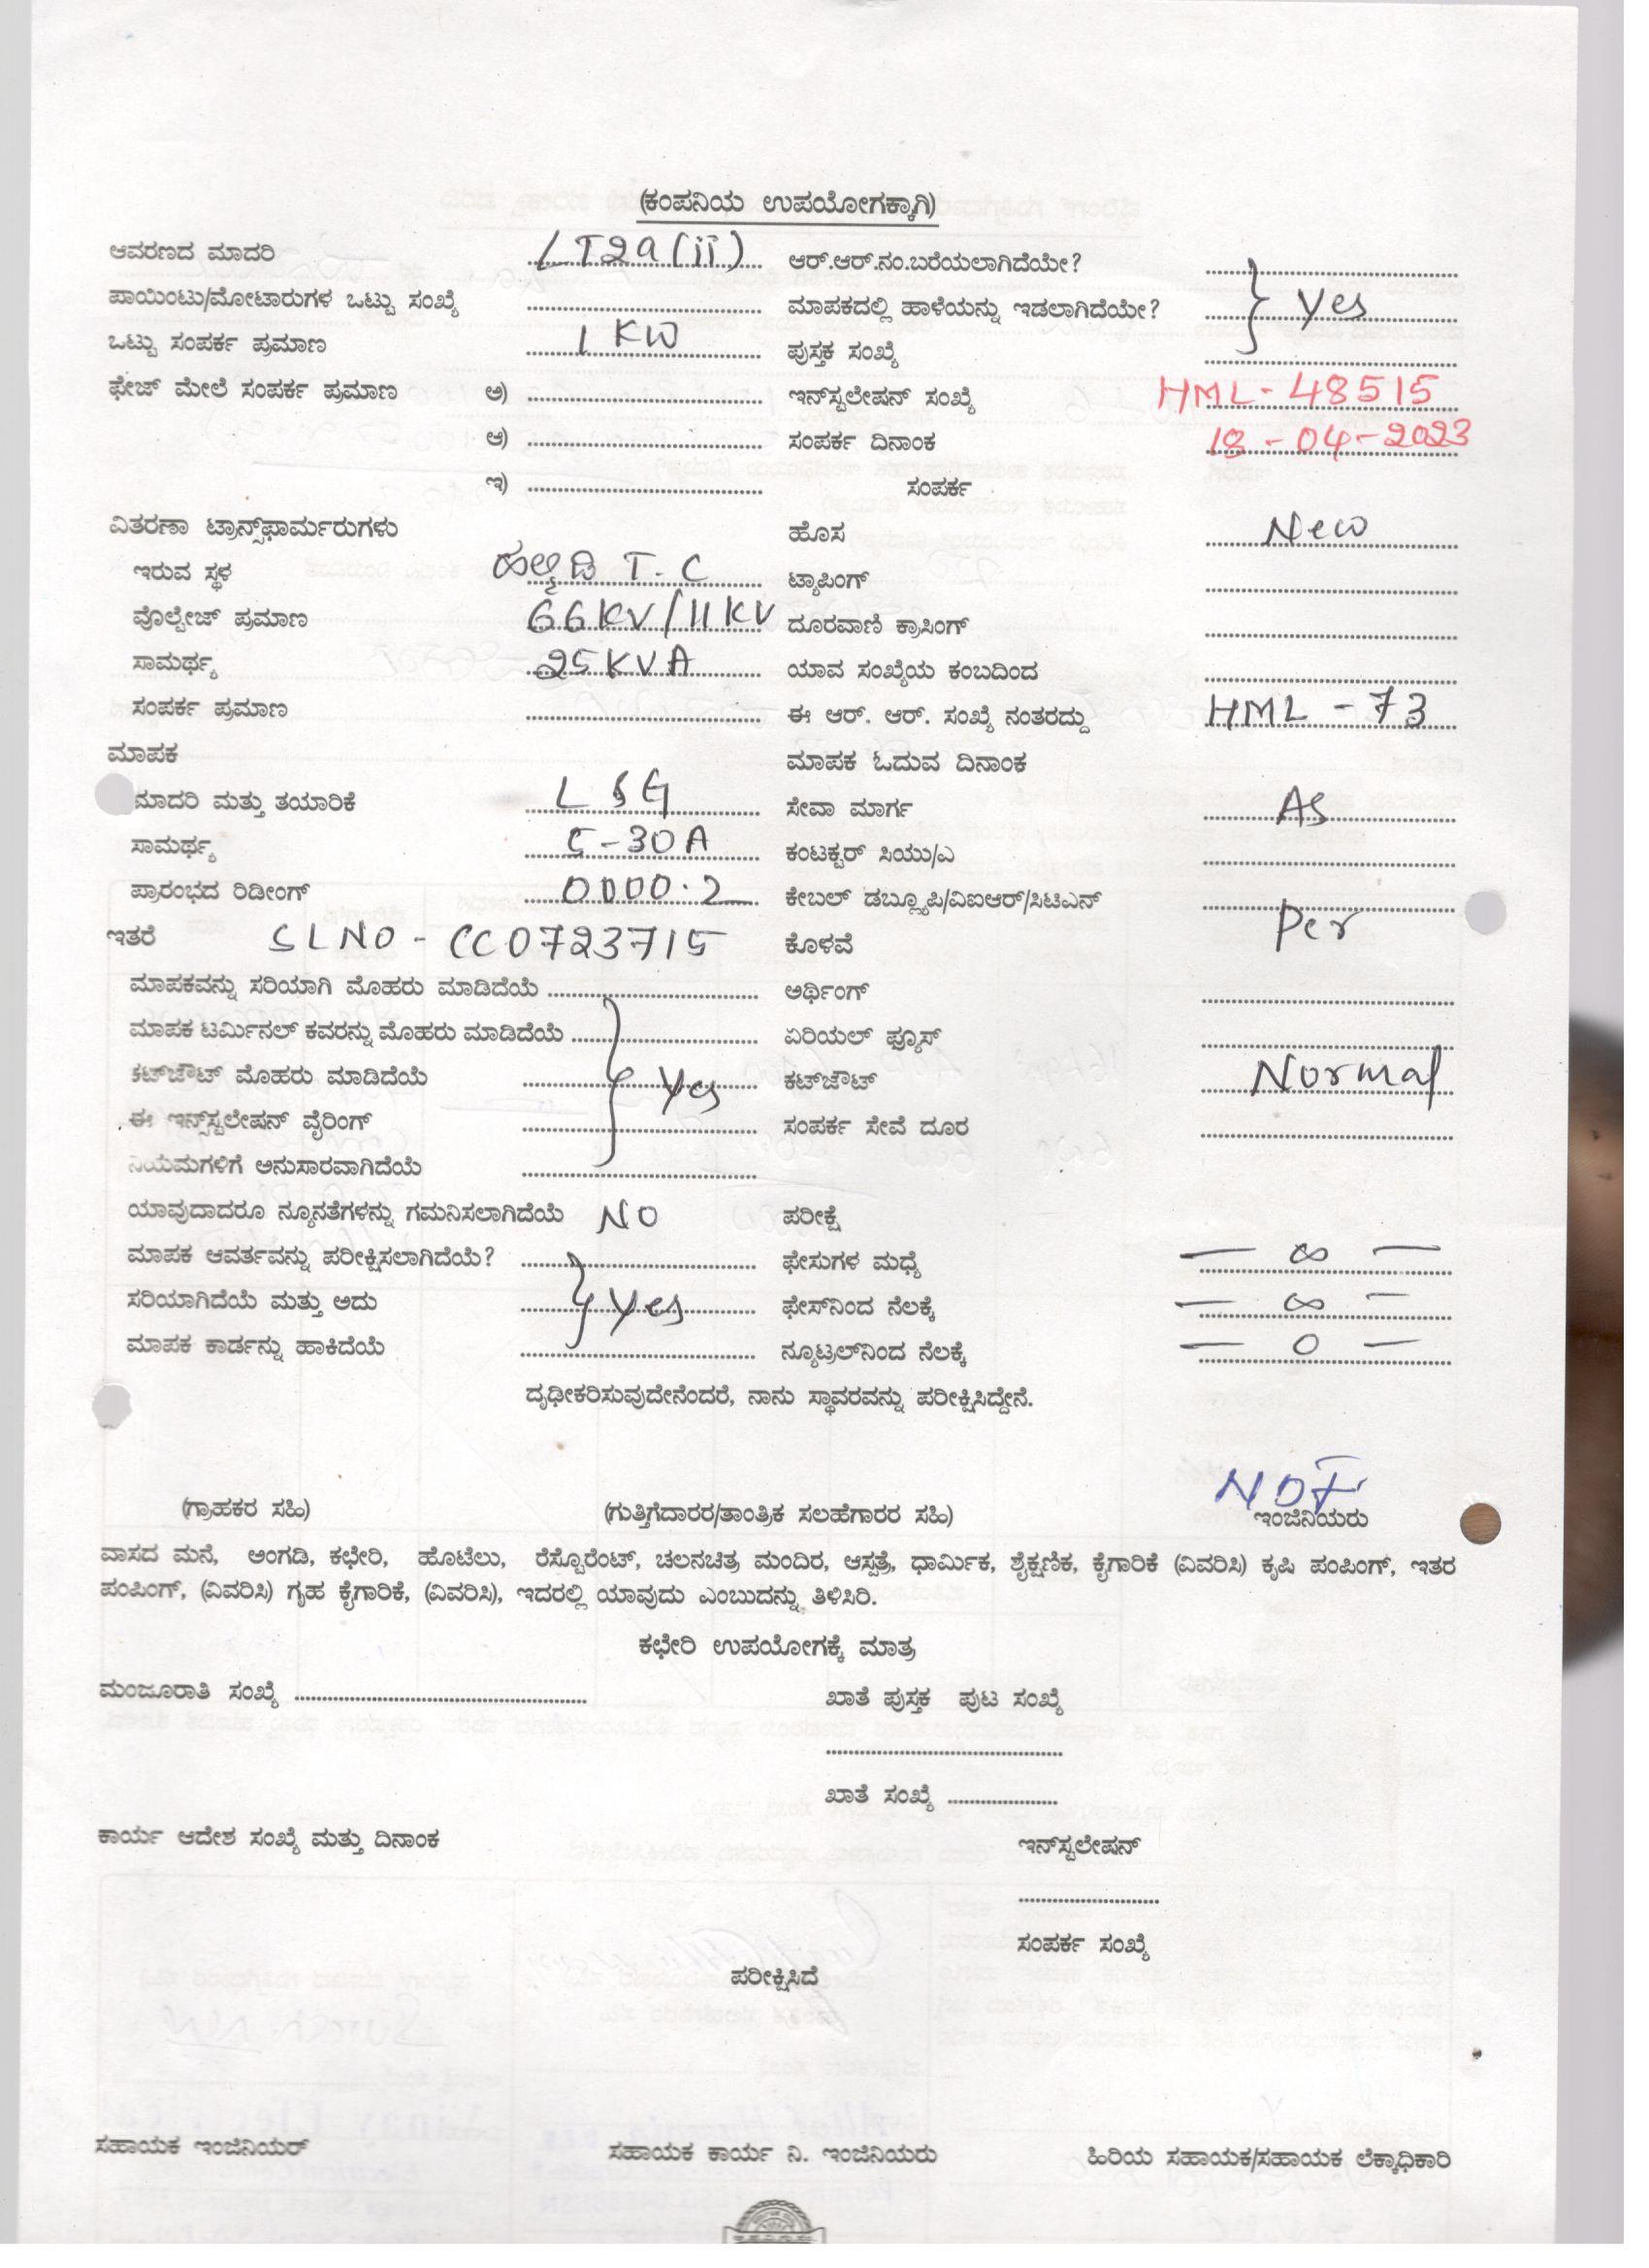 (ಕಂಪನಿಯ ಉಪಯೋಗಕ್ಕಾಗಿ)
ಆವರಣದ ಮಾದರಿ LT2a(ii) ಆರ್.ಆರ್.ನಂ.ಬರೆಯಲಾಗಿದೆಯೇ?
ಪಾಯಿಂಟು/ಮೋಟಾರುಗಳ ಒಟ್ಟು ಸಂಖ್ಯೆ ಮಾಪಕದಲ್ಲಿ ಹಾಳೆಯನ್ನು ಇಡಲಾಗಿದೆಯೇ? Yes
ಒಟ್ಟು ಸಂಪರ್ಕ ಪ್ರಮಾಣ 1 KW ಪುಸ್ತಕ ಸಂಖ್ಯೆ
ಫೇಜ್ ಮೇಲೆ ಸಂಪರ್ಕ ಪ್ರಮಾಣ ಅ) ಇನ್‌ಸ್ಟಲೇಷನ್ ಸಂಖ್ಯೆ HML-48515
ಆ) ಸಂಪರ್ಕ ದಿನಾಂಕ 18-04-2023
ಇ) ಸಂಪರ್ಕ
ವಿತರಣಾ ಟ್ರಾನ್ಸ್‌ಫಾರ್ಮರುಗಳು ಹೊಸ New
ಇರುವ ಸ್ಥಳ T.C ಟ್ಯಾಪಿಂಗ್
ವೊಲ್ಟೇಜ್ ಪ್ರಮಾಣ 66KV/11KV ದೂರವಾಣಿ ಕ್ರಾಸಿಂಗ್
ಸಾಮರ್ಥ್ಯ 25KVA ಯಾವ ಸಂಖ್ಯೆಯ ಕಂಬದಿಂದ
ಸಂಪರ್ಕ ಪ್ರಮಾಣ ಈ ಆರ್. ಆರ್. ಸಂಖ್ಯೆ ನಂತರದ್ದು HML-73
ಮಾಪಕ ಮಾಪಕ ಓದುವ ದಿನಾಂಕ
ಮಾದರಿ ಮತ್ತು ತಯಾರಿಕೆ L&G ಸೇವಾ ಮಾರ್ಗ As
ಸಾಮರ್ಥ್ಯ 5-30A ಕಂಟಕ್ಟರ್ ಸಿಯು/ಎ
ಪ್ರಾರಂಭದ ರಿಡೀಂಗ್ 0000.2 ಕೇಬಲ್ ಡಬ್ಲ್ಯೂಪಿ/ವಿಐಆರ್/ಸಿಟಿಎಸ್
ಇತರೆ SLNO-CC0723715 ಕೊಳವೆ Per
ಮಾಪಕವನ್ನು ಸರಿಯಾಗಿ ಮೊಹರು ಮಾಡಿದೆಯೆ ಅರ್ಥಿಂಗ್
ಮಾಪಕ ಟರ್ಮಿನಲ್ ಕವರನ್ನು ಮೊಹರು ಮಾಡಿದೆಯೆ ಏರಿಯಲ್ ಫ್ಯೂಸ್
ಕಟ್‌ಔಟ್ ಮೊಹರು ಮಾಡಿದೆಯೆ Yes ಕಟ್‌ಔಟ್ Normal
ಈ ಇನ್ಸ್‌ಸ್ಟಲೇಷನ್ ವೈರಿಂಗ್ ಸಂಪರ್ಕ ಸೇವೆ ದೂರ
ನಿಯಮಗಳಿಗೆ ಅನುಸಾರವಾಗಿದೆಯೆ
ಯಾವುದಾದರೂ ನ್ಯೂನತೆಗಳನ್ನು ಗಮನಿಸಲಾಗಿದೆಯೆ NO ಪರೀಕ್ಷೆ
ಮಾಪಕ ಆವರ್ತವನ್ನು ಪರೀಕ್ಷಿಸಲಾಗಿದೆಯೆ? ಫೇಸುಗಳ ಮಧ್ಯೆ — ∞ —
ಸರಿಯಾಗಿದೆಯೆ ಮತ್ತು ಅದು Yes ಫೇಸ್‌ನಿಂದ ನೆಲಕ್ಕೆ — ∞ —
ಮಾಪಕ ಕಾರ್ಡನ್ನು ಹಾಕಿದೆಯೆ ನ್ಯೂಟ್ರಲ್‌ನಿಂದ ನೆಲಕ್ಕೆ — 0 —
ದೃಢೀಕರಿಸುವುದೇನೆಂದರೆ, ನಾನು ಸ್ಥಾವರವನ್ನು ಪರೀಕ್ಷಿಸಿದ್ದೇನೆ.
(ಗ್ರಾಹಕರ ಸಹಿ) (ಗುತ್ತಿಗೆದಾರರ/ತಾಂತ್ರಿಕ ಸಲಹೆಗಾರರ ಸಹಿ) ಇಂಜಿನಿಯರು
ವಾಸದ ಮನೆ, ಅಂಗಡಿ, ಕಛೇರಿ, ಹೊಟೆಲು, ರೆಸ್ಟೊರೆಂಟ್, ಚಲನಚಿತ್ರ ಮಂದಿರ, ಆಸ್ಪತ್ರೆ, ಧಾರ್ಮಿಕ, ಶೈಕ್ಷಣಿಕ, ಕೈಗಾರಿಕೆ (ವಿವರಿಸಿ) ಕೃಷಿ ಪಂಪಿಂಗ್, ಇತರ
ಪಂಪಿಂಗ್, (ವಿವರಿಸಿ) ಗೃಹ ಕೈಗಾರಿಕೆ, (ವಿವರಿಸಿ), ಇದರಲ್ಲಿ ಯಾವುದು ಎಂಬುದನ್ನು ತಿಳಿಸಿರಿ.
ಕಛೇರಿ ಉಪಯೋಗಕ್ಕೆ ಮಾತ್ರ
ಮಂಜೂರಾತಿ ಸಂಖ್ಯೆ ಖಾತೆ ಪುಸ್ತಕ ಪುಟ ಸಂಖ್ಯೆ
ಖಾತೆ ಸಂಖ್ಯೆ
ಕಾರ್ಯ ಆದೇಶ ಸಂಖ್ಯೆ ಮತ್ತು ದಿನಾಂಕ ಇನ್‌ಸ್ಟಲೇಷನ್
ಸಂಪರ್ಕ ಸಂಖ್ಯೆ
ಪರೀಕ್ಷಿಸಿದೆ
ಸಹಾಯಕ ಇಂಜಿನಿಯರ್ ಸಹಾಯಕ ಕಾರ್ಯ ನಿ. ಇಂಜಿನಿಯರು ಹಿರಿಯ ಸಹಾಯಕ/ಸಹಾಯಕ ಲೆಕ್ಕಾಧಿಕಾರಿ